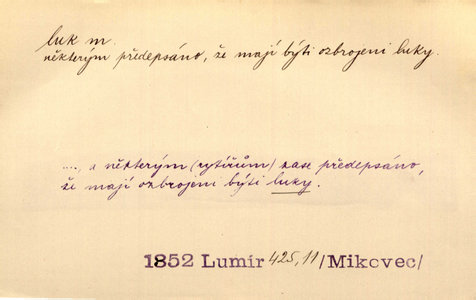 luk m.
některým předepsáno, že mají býti ozbrojeni luky.
...., a některým (rytířům) zase předepsáno,
že mají ozbrojeni býti luky.
1852 Lumír 425,11 /Mikovec/